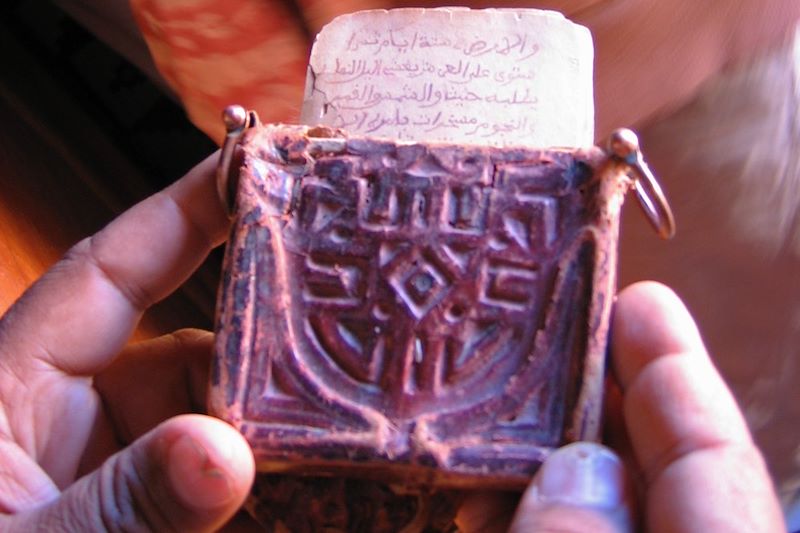 والارض في ستة ايام ثم ا
ستوى على العرش يغشى اليل النها
يطلبه حثيثا والشمس والقمر
والنجوم مسخرات بامره الا